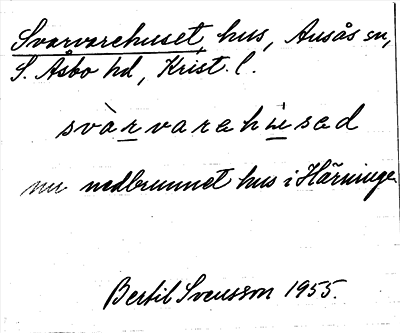 Svarvarehuset, hus, Ausås sn,
S. Åsbo hd, Krist. l.
svàrvarehu̇sad
nu nedbrunnet hus i Härninge
Bertil Svensson 1955.